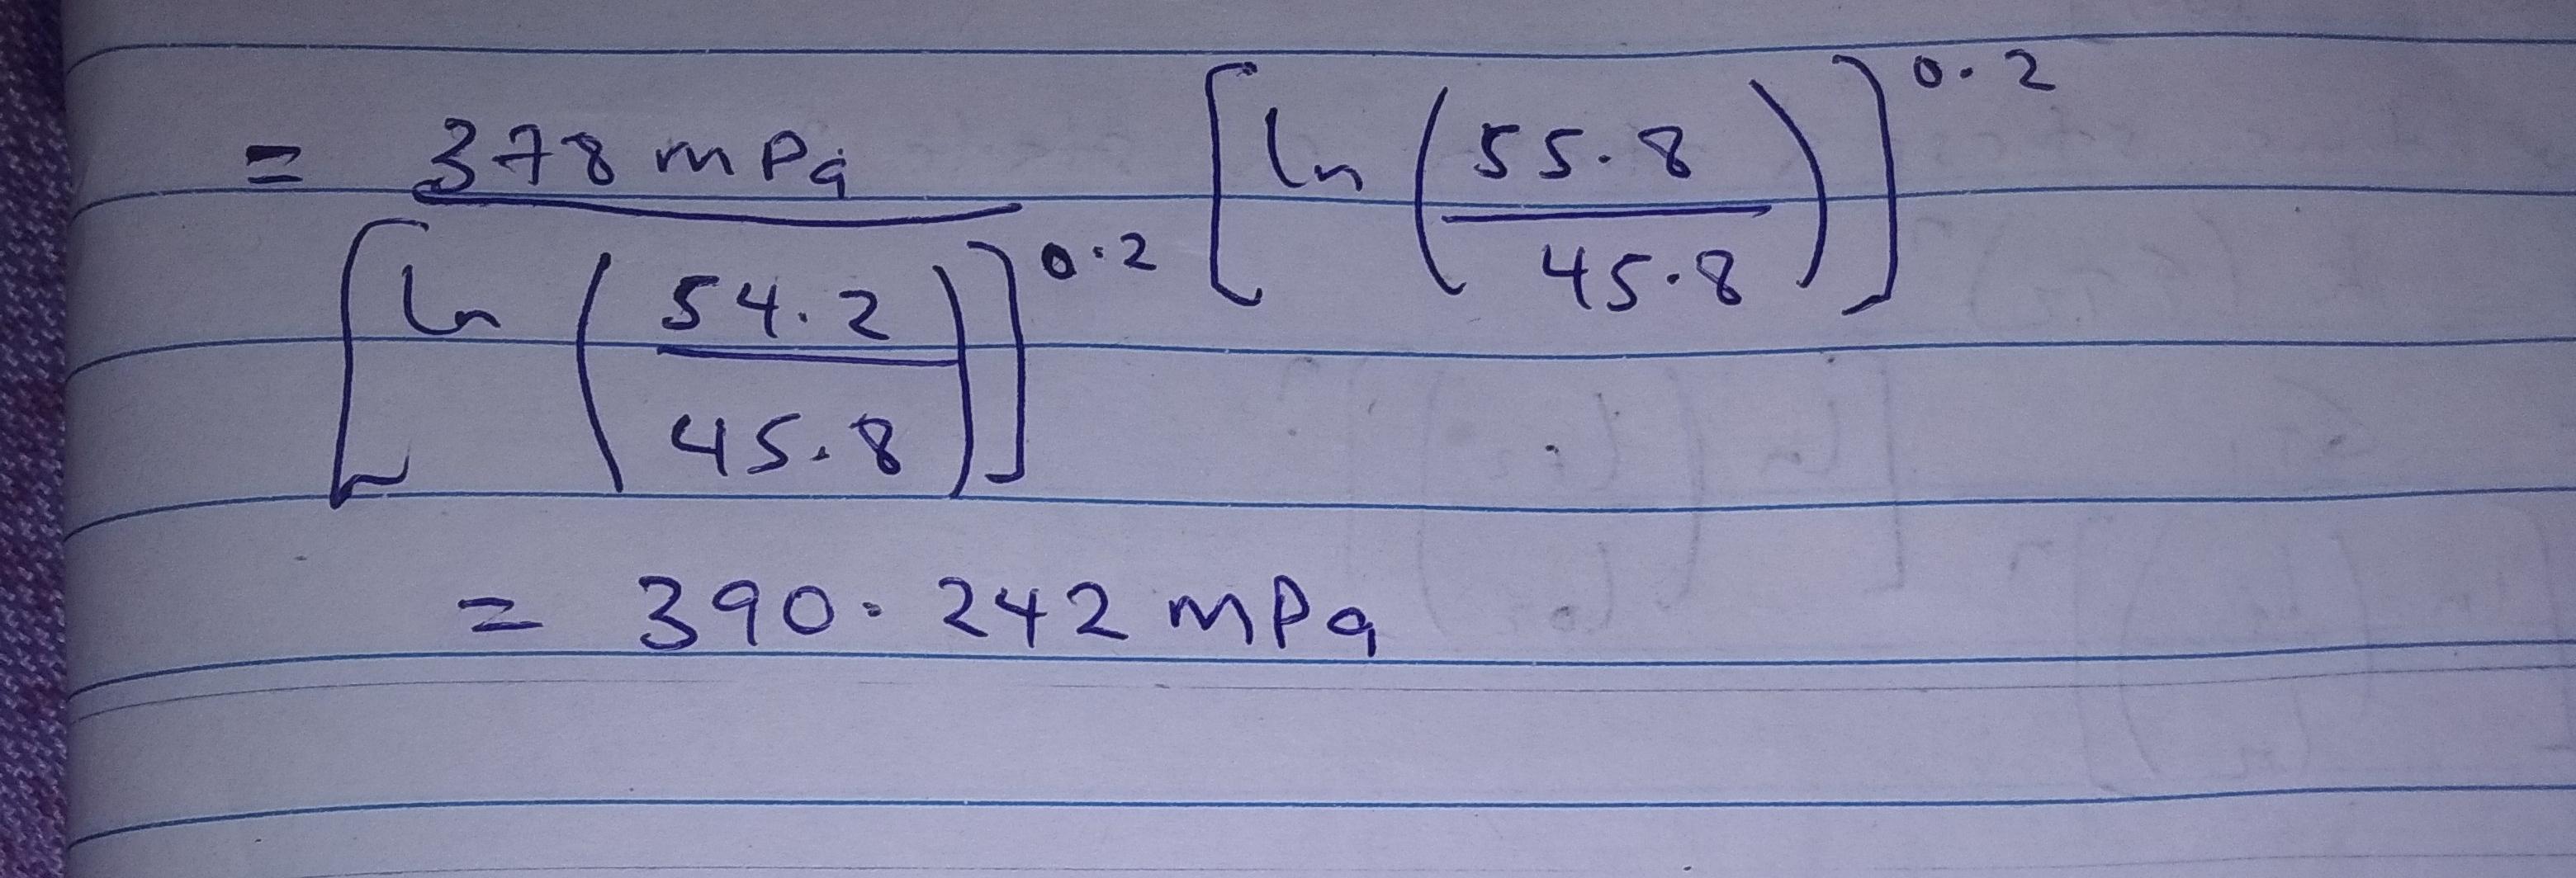 = 378 mPa / [ln (54.2 / 45.8)]^0.2 [ln (55.8 / 45.8)]^0.2
= 390.242 mPa